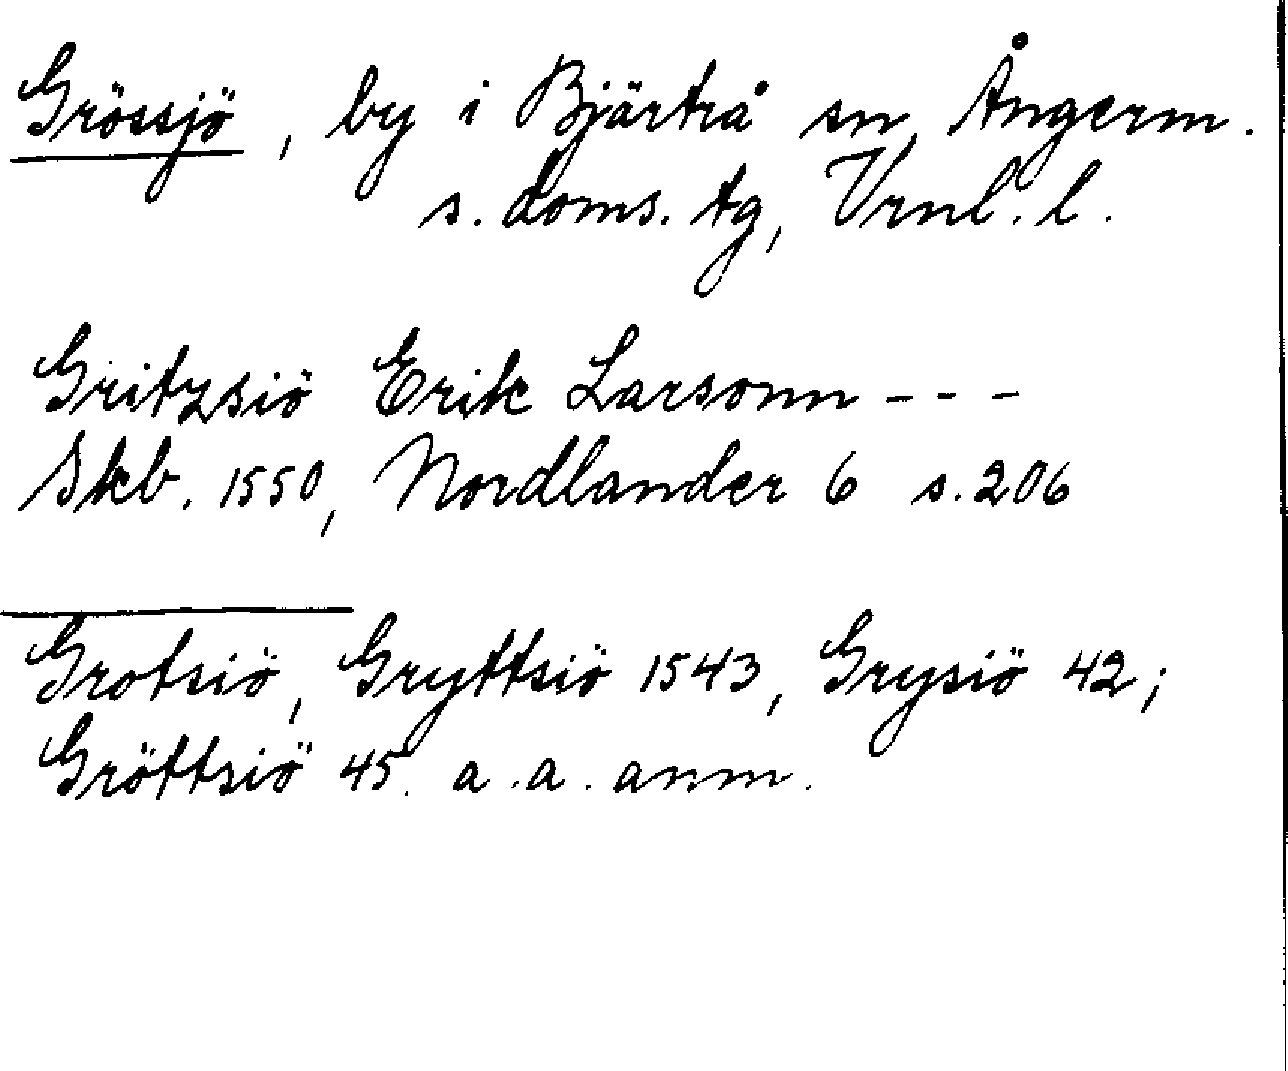 Grössjö, by i Bjärtrå sn, Ångerm.
s. doms. tg, Vrnl. l.
Gritzsiö Erik Larsonn - - -
Skb. 1550, Nordlander 6 s. 206
Grotsiö, Gryttsiö 1543, Grysiö 42;
Gröttsiö 45. a. a. anm.